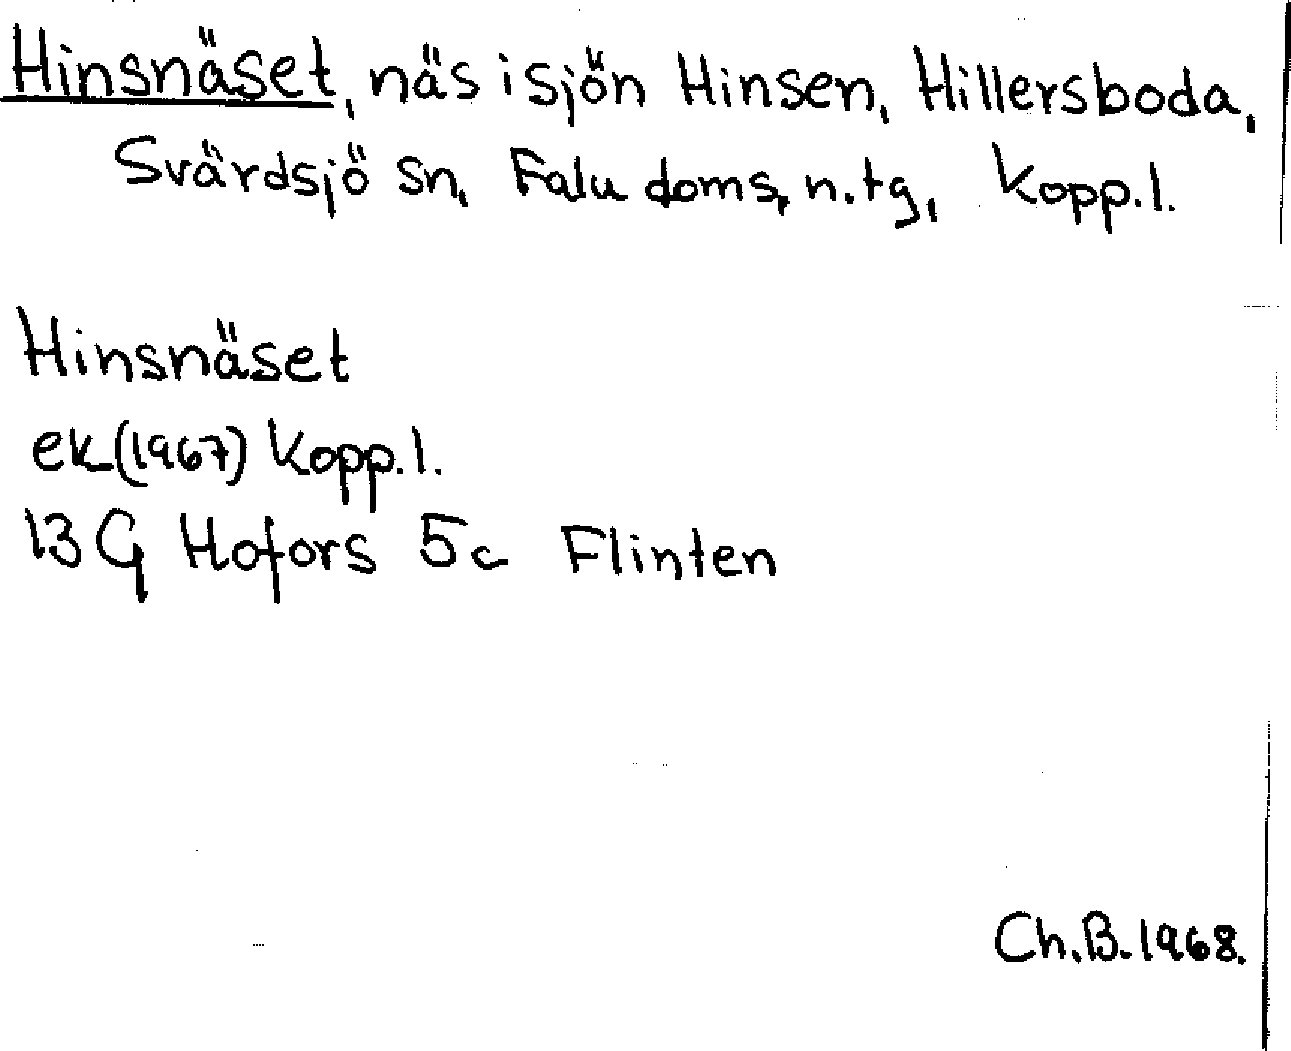 Hinsnäset, näs i sjön Hinsen, Hillersboda,
Svärdsjö sn, Falu doms, n.tg, Kopp.l.
Hinsnäset
ek (1967) Kopp.l.
13 G Hofors 5c Flinten
Ch.B. 1968.